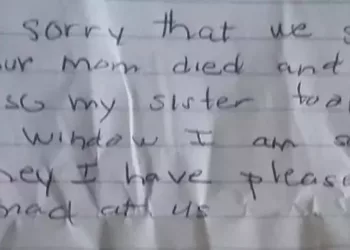 sorry that we s
ur mom died and
so my sister too
window I am s
ey I have pleas
mad at us